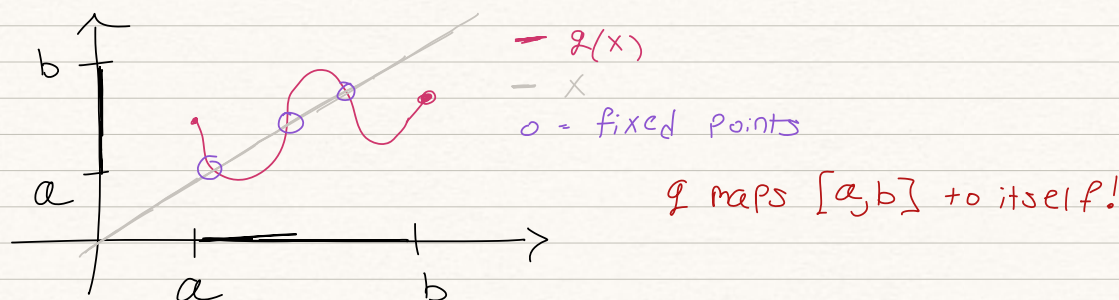 b
a
a
b
g(x)
x
o = fixed points
g maps [a,b] to itself!